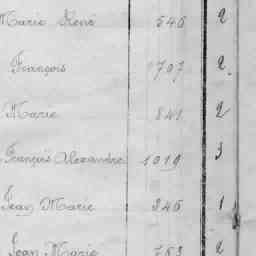 Marie René 546 2
François 707 2
Marie 841 2
François Alexandre 1019 3
Jean Marie 246 1
Jean Marie 783 2